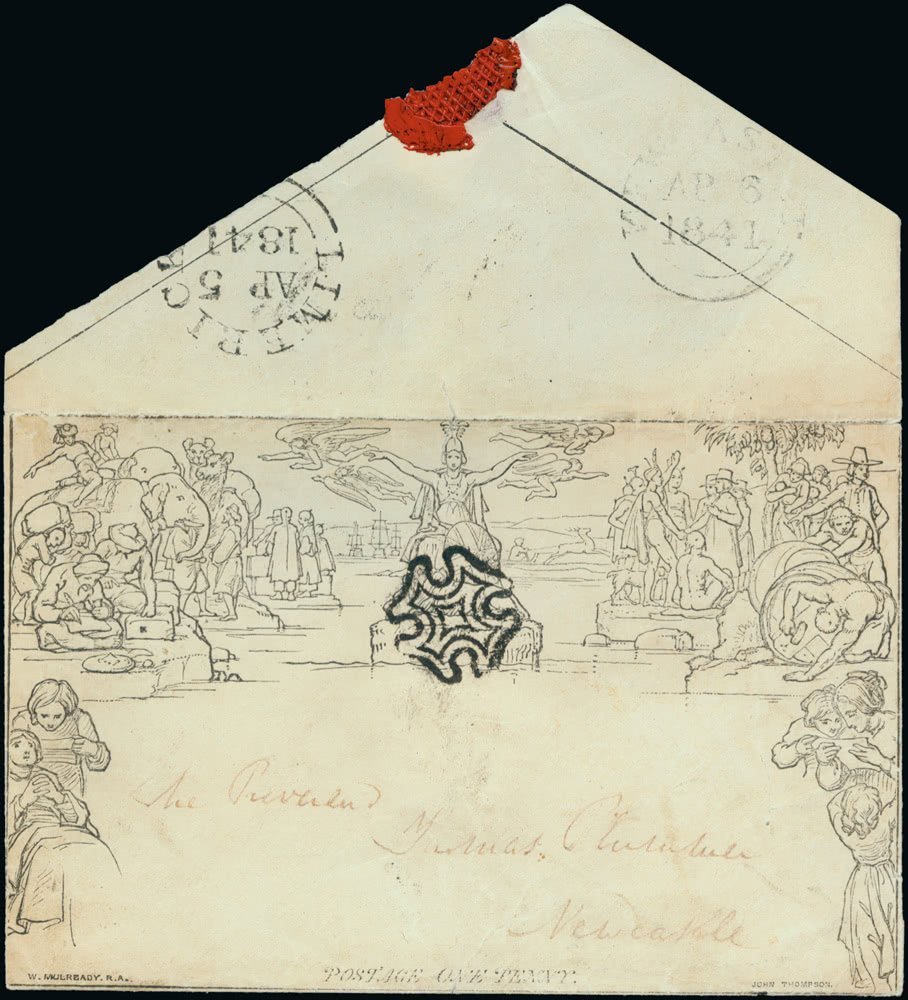 AP 6
1841
LIMERICK
AP 5
1841
The Reverend
Thomas Plummer
Newcastle
W. MULREADY. R.A.
POSTAGE ONE PENNY.
JOHN THOMPSON.